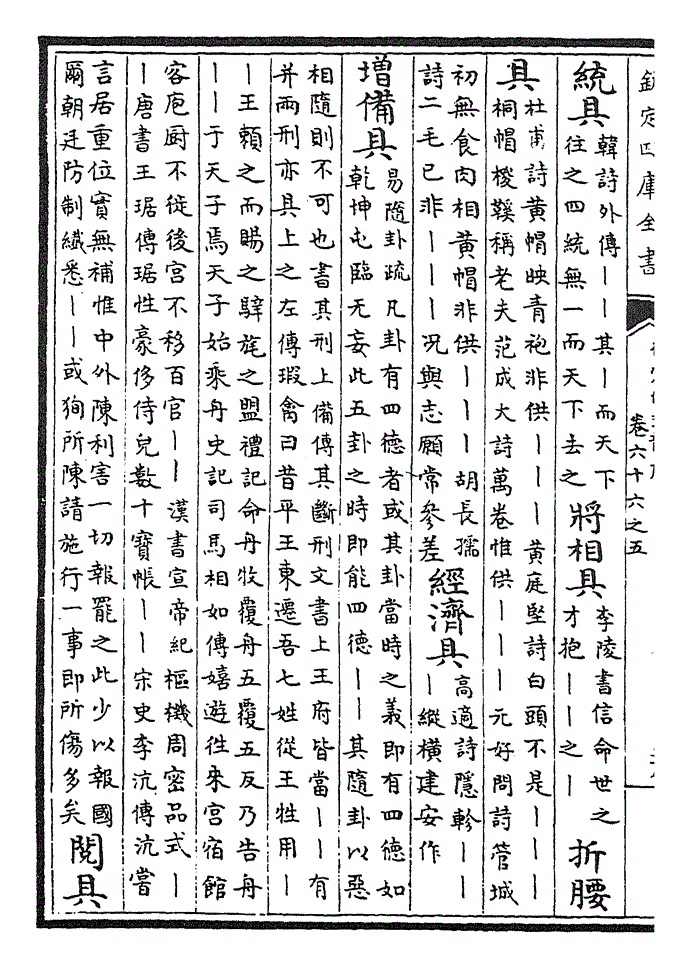 欽定四庫全書
卷六十六之五
統具 韓詩外傳丨丨其丨而天下
往之四統無一而天下去之
將相具 李陵書信命世之
才抱丨丨之丨
折腰
具 杜甫詩黃帽映青袍非供丨丨丨黃庭堅詩白頭不是丨丨丨
桐帽椶鞵稱老夫范成大詩萬卷惟供丨丨丨元好問詩管城
初無食肉相黃帽非供丨丨丨胡長孺
詩二毛已非丨丨丨况與志願常參差
經濟具 高適詩隱軫丨丨
丨縱橫建安作
増備具 易隨卦疏凡卦有四德者或其卦當時之義即有四德如
乾坤屯臨无妄此五卦之時即能四德丨丨其隨卦以惡
相隨則不可也書其刑上備傳其斷刑文書上王府皆當丨丨有
并兩刑亦具上之左傳瑕禽曰昔平王東遷吾七姓從王牲用丨
丨王賴之而賜之騂旄之盟禮記命舟牧覆舟五覆五反乃告舟
丨丨于天子焉天子始乘舟史記司馬相如傳嬉遊往來宮宿館
客庖厨不徙後宮不移百官丨丨漢書宣帝紀樞機周密品式丨
丨唐書王琚傳琚性豪侈侍兒數十寶帳丨丨宋史李沆傳沆嘗
言居重位實無補惟中外陳利害一切報罷之此少以報國
爾朝廷防制纖悉丨丨或狥所陳請施行一事即所傷多矣
閱具